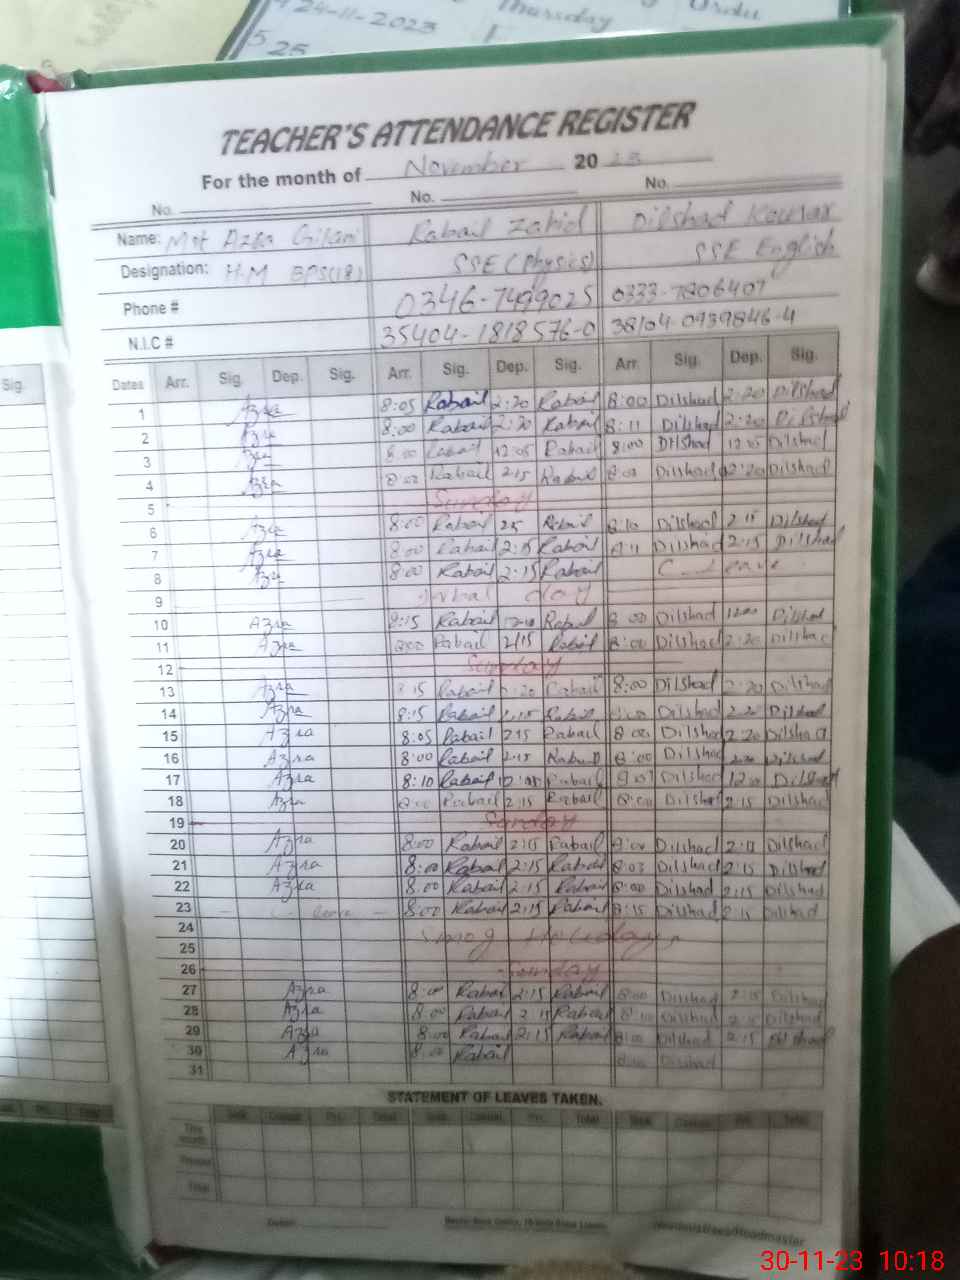 24-11-2023 Thursday Urdu
25
TEACHER'S ATTENDANCE REGISTER
For the month of November 20 23
No. No. No.
Name: Mst Azra Gilani Rabail Zahid Dilshad Kousar
Designation: H.M BPS(18) SSE (Physics) SSE English
Phone # 0346-7499025 0333-7806407
N.I.C # 35404-1818576-0 38104-0939846-4
Dates Arr. Sig. Dep. Sig. Arr. Sig. Dep. Sig. Arr. Sig. Dep. Sig.
1 Azra 8:05 Rabail 2:20 Rabail 8:00 Dilshad 2:20 Dilshad
2 Azra 8:00 Rabail 2:20 Rabail 8:11 Dilshad 2:20 Dilshad
3 Azra 8:00 Rabail 12:05 Rabail 8:00 Dilshad 12:05 Dilshad
4 Azra Rabail 2:15 Rabail Dilshad 2:20 Dilshad
5 Sunday
6 Azra 8:00 Rabail Rabail 8:10 Dilshad 2:15 Dilshad
7 Azra 8:00 Rabail 2:15 Rabail 8:11 Dilshad 2:15 Dilshad
8 Azra 8:00 Rabail 2:15 Rabail C leave
9 Iqbal day
10 Azra 8:15 Rabail Rabail 8:00 Dilshad Dilshad
11 Azra 8:00 Rabail 2:15 Rabail 8:00 Dilshad 2:20 Dilshad
12 Sunday
13 Azra 8:15 Rabail 2:20 Rabail 8:00 Dilshad 2:20 Dilshad
14 Azra 8:15 Rabail 2:15 Rabail Dilshad 2:20 Dilshad
15 Azra 8:05 Rabail 2:15 Rabail 8:00 Dilshad 2:20 Dilshad
16 Azra 8:00 Rabail 2:15 Rabail 8:00 Dilshad Dilshad
17 Azra 8:10 Rabail Rabail Dilshad Dilshad
18 Azra 8:00 Rabail 2:15 Rabail 8:00 Dilshad 2:15 Dilshad
19 Sunday
20 Azra 8:00 Rabail 2:15 Rabail Dilshad 2:15 Dilshad
21 Azra 8:00 Rabail 2:15 Rabail 8:03 Dilshad 2:15 Dilshad
22 Azra 8:00 Rabail 2:15 Rabail 8:00 Dilshad 2:15 Dilshad
23 C leave 8:00 Rabail 2:15 Rabail 8:15 Dilshad 2:15 Dilshad
24 Smog Holiday,
25
26 Sunday
27 Azra 8:00 Rabail 2:15 Rabail 8:00 Dilshad 2:15 Dilshad
28 Azra 8:00 Rabail 2:15 Rabail Dilshad Dilshad
29 Azra 8:00 Rabail 2:15 Rabail 8:00 Dilshad 2:15 Dilshad
30 Azra 8:00 Rabail 8:00 Dilshad
31
STATEMENT OF LEAVES TAKEN.
Sick Casual Pri. Total Sick Casual Pri. Total Sick Casual Pri. Total
This month
Previous
Total
30-11-23 10:18